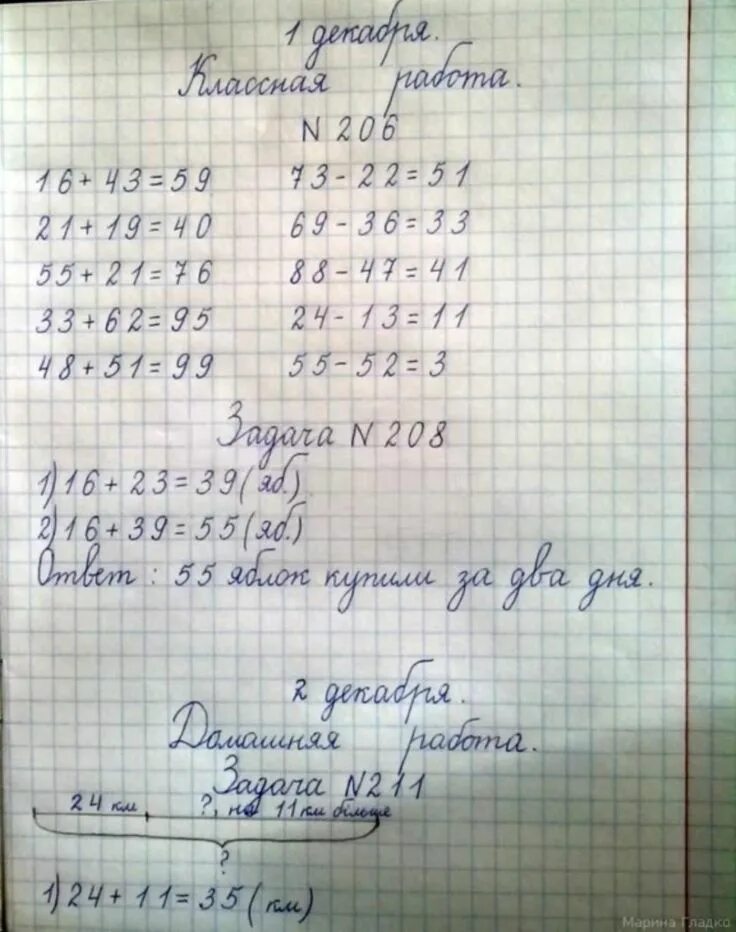 1 декабря.
Классная работа.
N 206
16 + 43 = 59 73 - 22 = 51
21 + 19 = 40 69 - 36 = 33
55 + 21 = 76 88 - 47 = 41
33 + 62 = 95 24 - 13 = 11
48 + 51 = 99 55 - 52 = 3
Задача N 208
1) 16 + 23 = 39 (яб.)
2) 16 + 39 = 55 (яб.)
Ответ : 55 яблок купили за два дня.
2 декабря.
Домашняя работа.
Задача N 211
24 км ?, на 11 км більше
?
1) 24 + 11 = 35 (км)
Марина Гладко